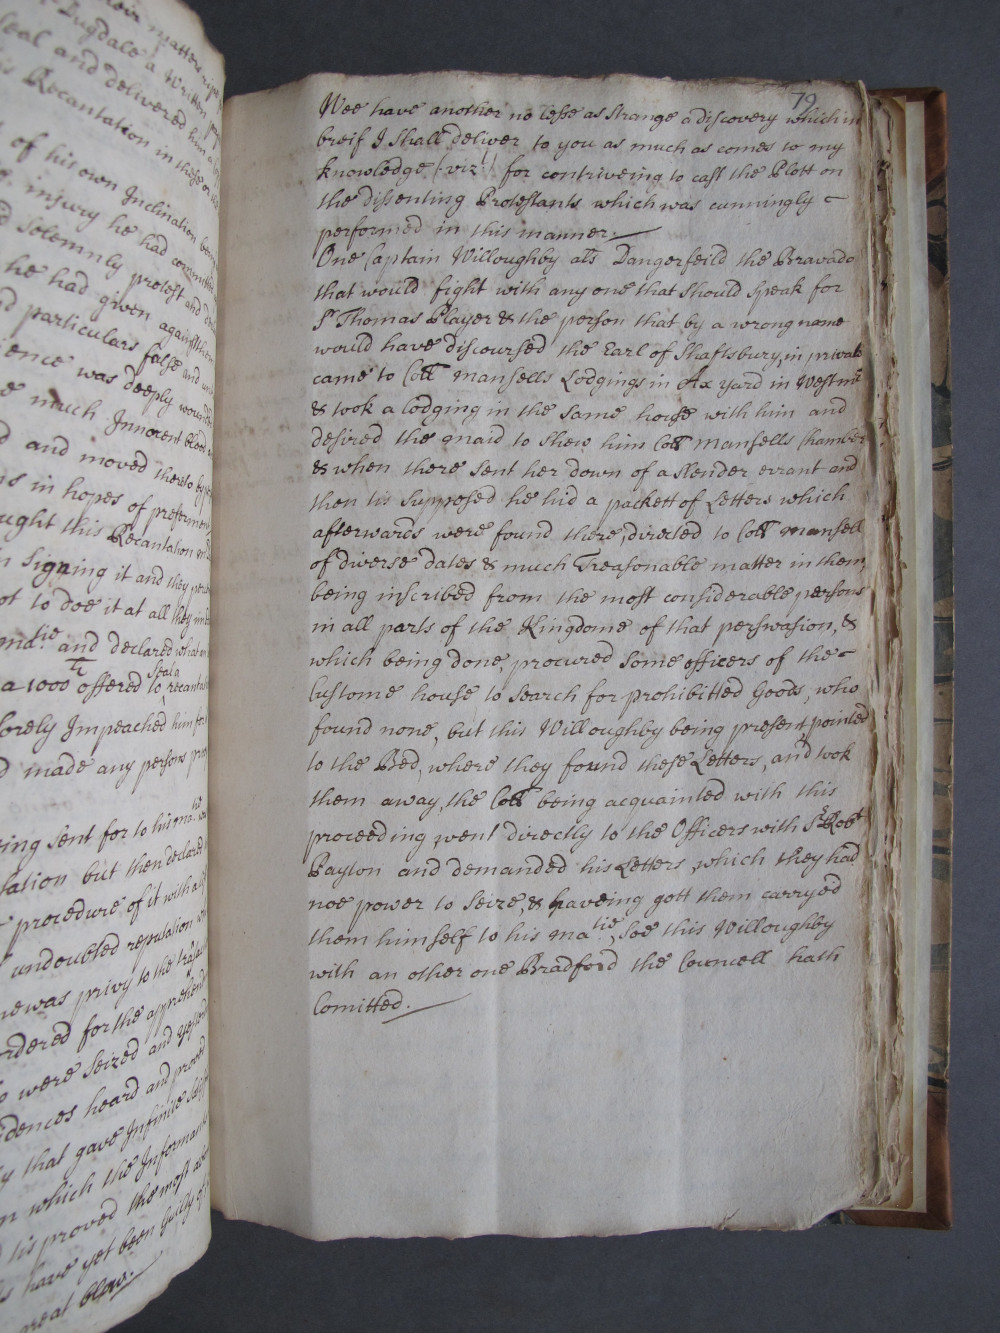 their matters
Dugdale a Written
seal and delivered him
Recantation in these
of his own Inclination being
injury he had committed
solemnly protest and
he had given against them
particulars false and
was deeply wounded
much Innocent blood
and moved thereto by
in hopes of preferment
this Recantation
Signing it and they
to doe it at all they
ma:tie and declared what
a 1000 offered to recant
seal a
Impeached him for
made any persons
being sent for to his ma:tie
but then declared
procedure of it with all
undoubted reputation
he was privy to the
ordered for the apprehend
were seized and yesterd
heard and proved
that gave Infinite
in which the Informan
tis proved the most
have yet been guilty of
great blow.
79
Wee have another no lesse as strange a discovery which in
breif I shall deliver to you as much as comes to my
knowledge (vizt) for contriveing to cast the Plott on
the dissenting Protestants which was cunningly
performed in this manner.
One Captain Willoughby als Dangerfeild the Bravado
that would fight with any one that should speak for
Sr Thomas Player & the person that by a wrong name
would have discoursed the Earl of Shaftsbury, in private
came to Coll Mansells Lodgings in Ax yard in Westmr
& took a lodging in the same house with him and
desired the maid to shew him Coll Mansells Chamber
& when there sent her down of a slender errant and
then tis supposed he hid a packett of Letters which
afterwards were found there, directed to Coll Mansell
of diverse dates & much Treasonable matter in them,
being inscribed from the most considerable persons
in all parts of the Kingdome of that perswasion, &
which being done, procured some officers of the
Custome house to search for prohibitted Goods, who
found none, but this Willoughby being present, pointed
to the Bed, where they found these Letters, and took
them away, the Coll being acquainted with this
proceeding went directly to the Officers with Sr Robt
Payton and demanded his Letters, which they had
noe power to seize, & haveing gott them carryed
them himself to his matie, soe this Willoughby
with an other one Bradford the Councell hath
Comitted.